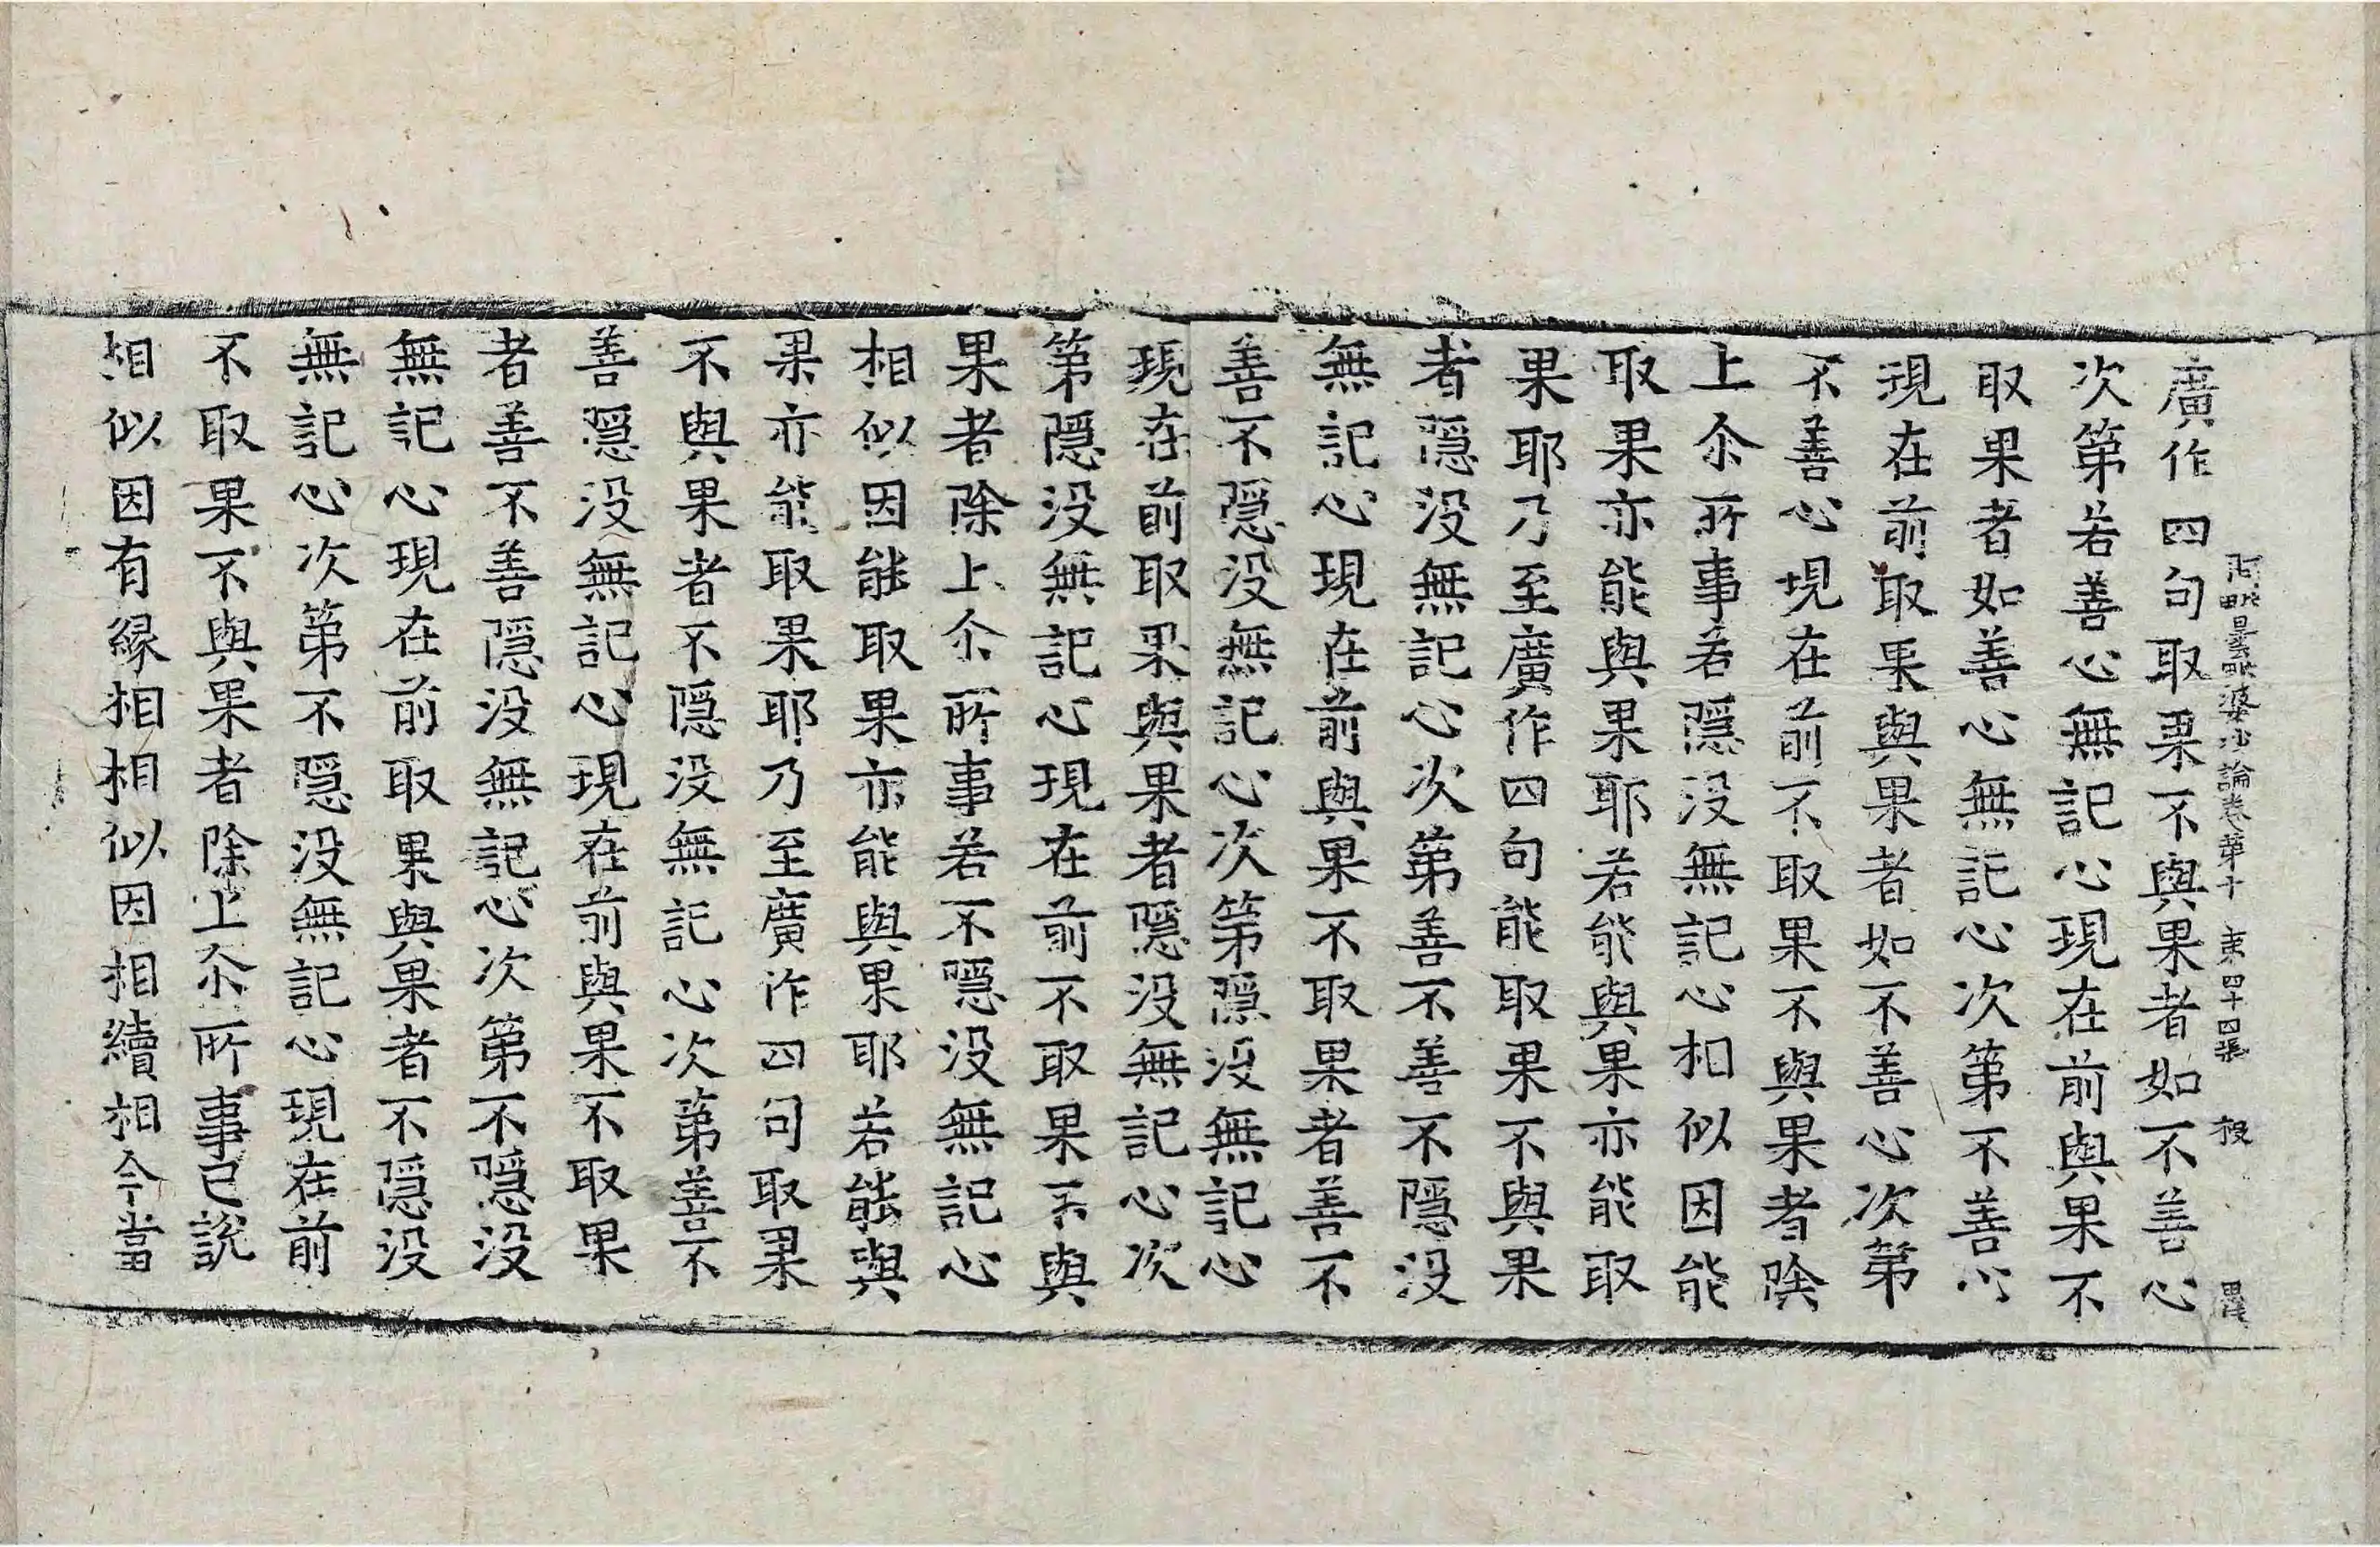 阿毗曇毗婆沙論卷第十 第四十四張 投
廣作四句取果不與果者如不善心
次第若善心無記心現在前與果不
取果者如善心無記心次第不善心
現在前取果與果者如不善心次第
不善心現在前不取果不與果者除
上尒所事若隱没無記心相似因能
取果亦能與果耶若能與果亦能取
果耶乃至廣作四句能取果不與果
者隱没無記心次第善不善不隱没
無記心現在前與果不取果者善不
善不隱没無記心次第隱没無記心
現在前取果與果者隱没無記心次
第隱没無記心現在前不取果不與
果者除上尒所事若不隱没無記心
相似因能取果亦能與果耶若能與
果亦能取果耶乃至廣作四句取果
不與果者不隱没無記心次第善不
善隱没無記心現在前與果不取果
者善不善隱没無記心次第不隱没
無記心現在前取果與果者不隱没
無記心次第不隱没無記心現在前
不取果不與果者除上尒所事已說
相似因有緣相相似因相續相今當